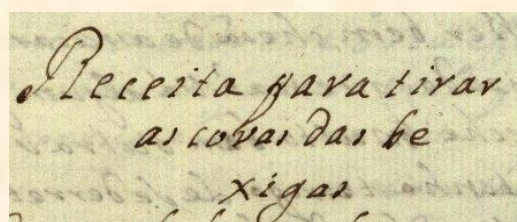 Receita para tirar
as covas das be
xigas